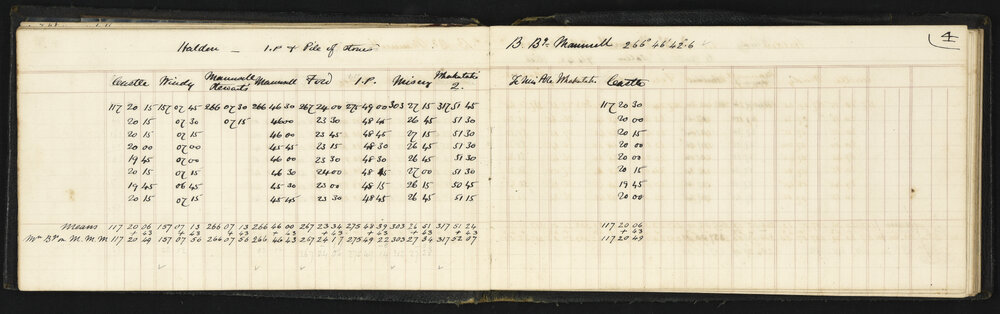 Haldon — I.P & Pile of stones B. Bg. Maunsell 266° 46' 42·6 4
Castle Windy Maunsell Stewarts Maunsell Ford I.P. Misery Whakataki 2. Whakataki Castle
117 20 15 157 07 45 266 07 30 266 46 30 267 24 00 275 49 00 303 27 15 317 51 45 117 20 30
20 15 07 30 07 15 46 00 23 30 48 45 26 45 51 30 20 00
20 15 07 15 46 00 23 45 48 45 27 15 51 30 20 15
20 00 07 00 45 45 23 15 48 30 26 45 51 30 20 00
19 45 07 00 46 00 23 30 48 30 26 45 51 30 20 00
20 15 07 15 46 30 24 00 48 45 27 00 51 30 20 15
19 45 06 45 45 30 23 00 48 15 26 15 50 45 19 45
20 15 07 15 45 45 23 30 48 45 26 45 51 15 20 00
Means 117 20 06 157 07 13 266 07 13 266 46 00 267 23 34 275 48 39 303 26 51 317 51 24 117 20 06
+ 43 + 43 + 43 + 43 + 43 + 43 + 43 + 43 + 43
Mn Bg on M.M.M 117 20 49 157 07 56 266 07 56 266 46 43 267 24 17 275 49 22 303 27 34 317 52 07 117 20 49